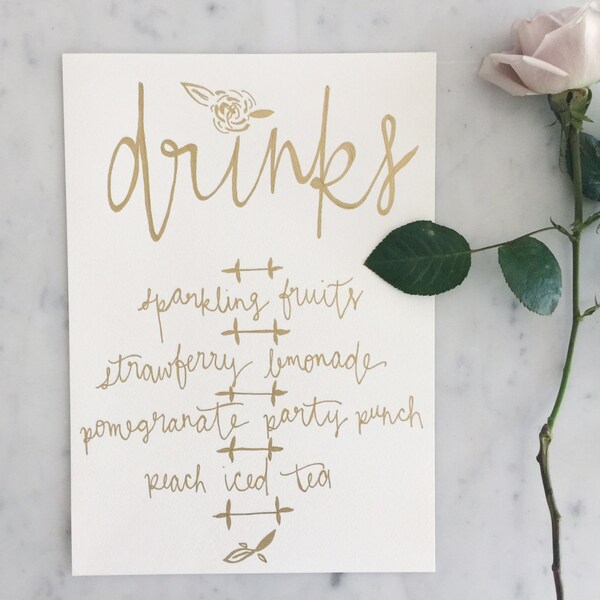 drinks
sparkling fruits
strawberry lemonade
pomegranate party punch
peach iced tea